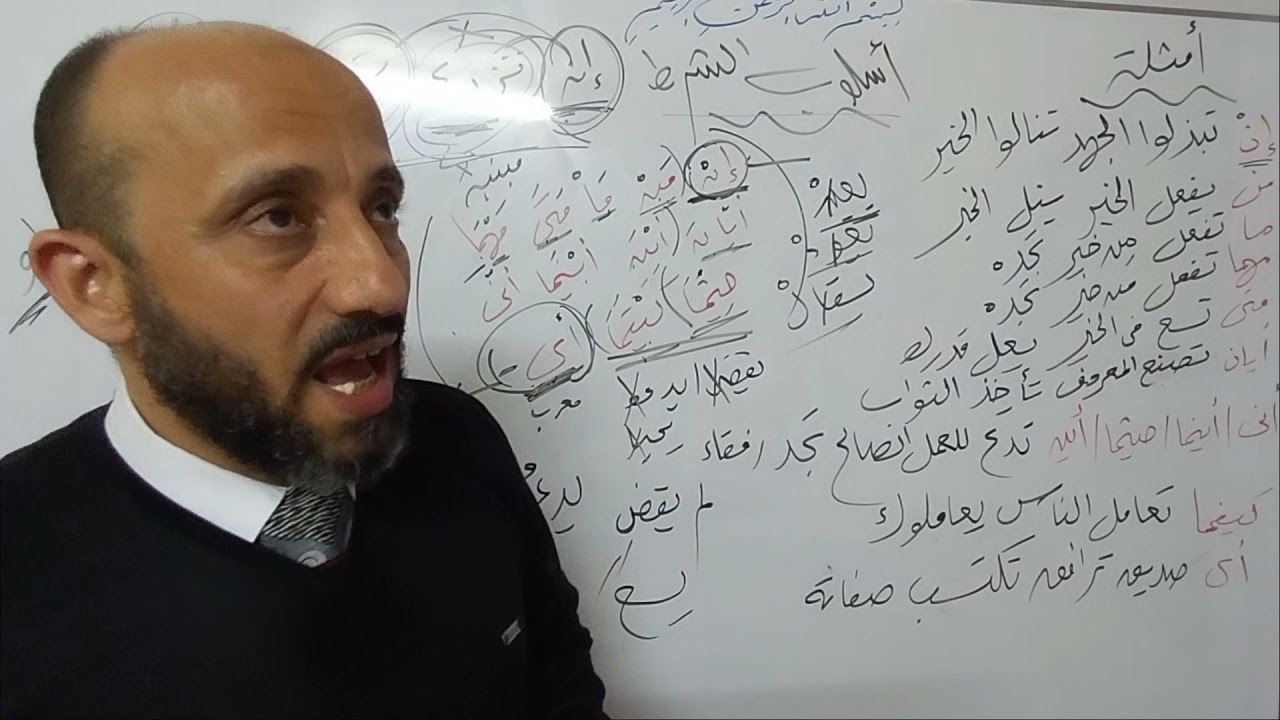 بسم الله الرحمن الرحيم
أسلوب الشرط
إن
مبنية
إن من ما متى مهما
أيان أين أينما أنى
حيثما كيفما أي
معرب
لم يقض
يسع
أمثلة
إنْ تبذلوا الجهد تنالوا الخير
من يفعل الخير ينل الخير
ما تفعل من خير تجده
مهما تفعل من خير تجده
متى تسع في الخير يعل قدرك
أيان تصنع المعروف تأخذ الثواب
أنى / أينما / حيثما / أين تدع للعمل الصالح تجد رفقاء
كيفما تعامل الناس يعاملوك
أي صديق ترافق تكتسب صفاته